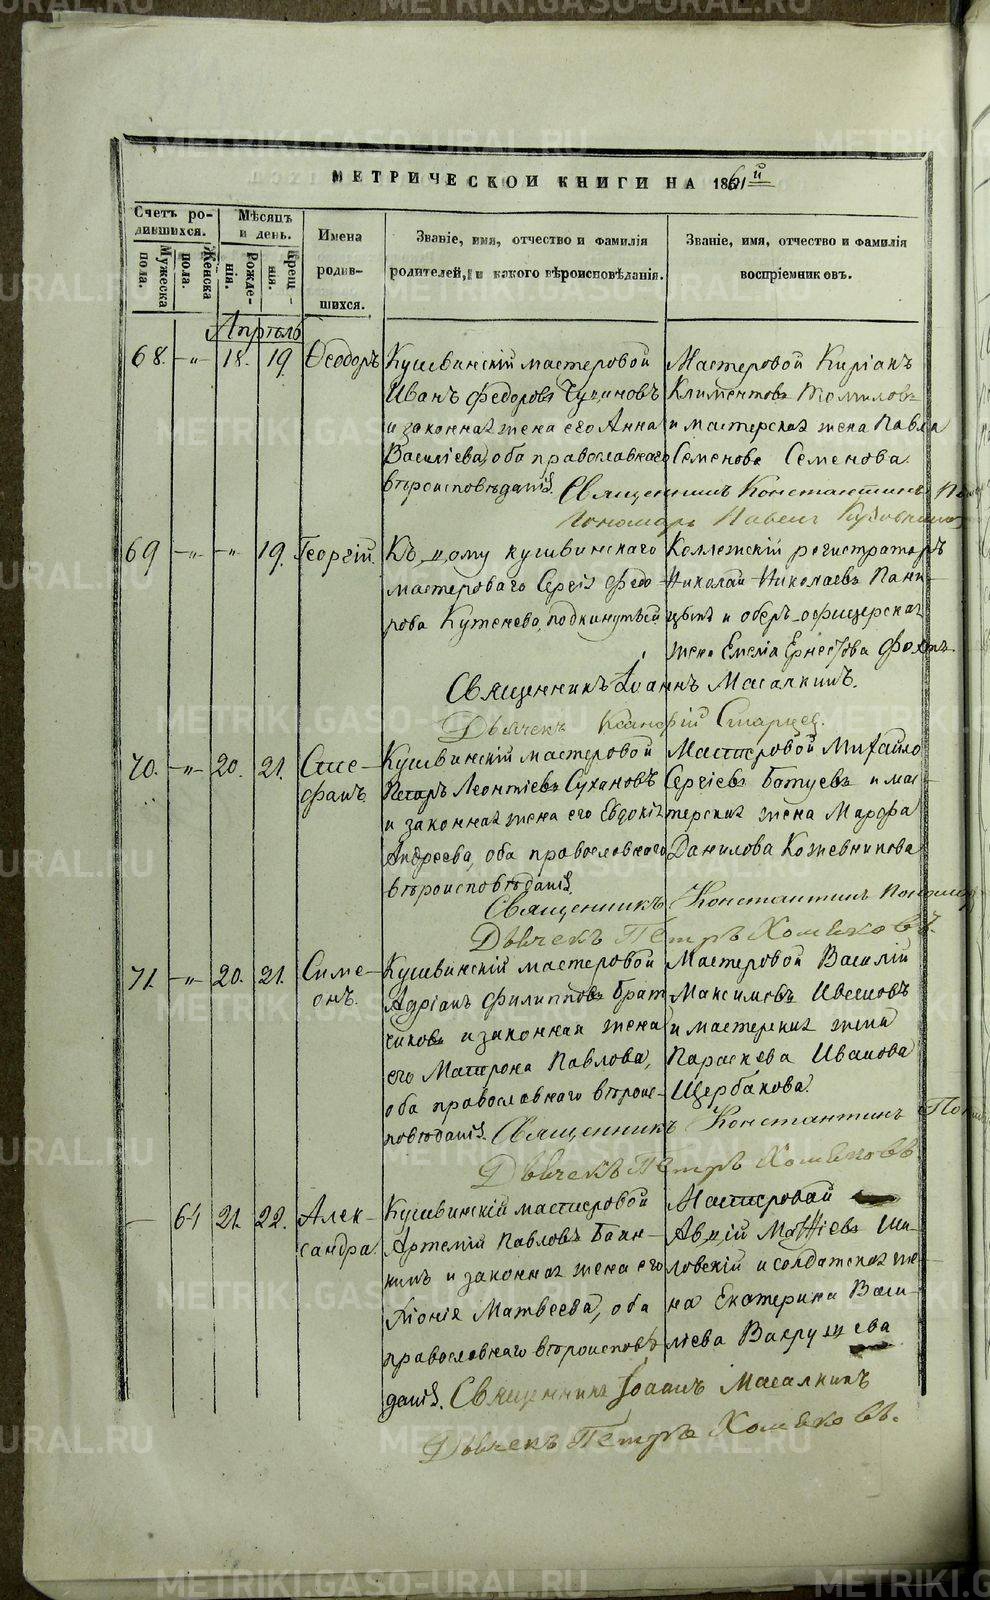 МЕТРИЧЕСКОЙ КНИГИ НА 1861й
Счетъ ро-
дившихся.
Мужеска пола.
Женска пола.
Мѣсяцъ
и день.
Рожде-
нія.
Крещ-
нія.
Имена
родив-
шихся.
Званіе, имя, отчество и фамилія
родителей, и какого вѣроисповѣданія.
Званіе, имя, отчество и фамилія
воспріемниковъ.
Апрѣль
68. -"- 18. 19. Ѳеодоръ
Кушвинскій мастеровой
Иванъ Федоровъ
и законная жена его Анна
Василіева, оба православнаго
вѣроисповѣданія.
Мастеровой Киріакъ
Климентовъ Томиловъ
и мастерская жена Павла
Семенова Семенова.
Священникъ Константинъ
Пономарь Павелъ
69 -"- -"- 19. Георгій.
Къ дому кушвинскаго
мастероваго Сергія Федо-
рова Кутенева, подкинутый
Коллежскій регистраторъ
Николай Николаевъ
и оберъ-офицерская
жена Емелія Ернестова
Священникъ Іоаннъ Масалкинъ.
Дьячекъ Ксанофій Старцев.
70. -"- 20. 21. Сте-
фанъ.
Кушвинскій мастеровой
Петръ Леонтіевъ Сухановъ
и законная жена его Евдокія
Андреева, оба православнаго
вѣроисповѣданія.
Мастеровой Михайло
Сергіевъ Батуевъ и мас-
терская жена Марфа
Данилова Кожевникова
Священникъ Константинъ Пономар
Дьячекъ Петръ Хомяковъ.
71. -"- 20. 21. Симе-
онъ.
Кушвинскій мастеровой
Адріанъ Филипповъ Брат
чиковъ и законная жена
его Матрона Павлова,
оба православнаго вѣроис-
повѣданія.
Мастеровой Василій
Максимовъ Ивешовъ
и мастерская жена
Параскева Иванова
Щербакова.
Священникъ Константинъ
Дьячекъ Петръ Хомяковъ
— 64 21. 22. Алек-
сандра.
Кушвинскій мастеровой
Артемій Павловъ Бан-
нихъ и законная жена его
Хіонія Матвеева, оба
православнаго вѣроисповѣ
данія.
Мастеровой
Авдій Матѳіевъ Ши-
ловскій и солдатская же-
на Екатерина Васи-
ліева Вахрушева
Священникъ Іоаннъ Масалкинъ
Дьячекъ Петръ Хомяковъ.
METRIKI.GASO-URAL.RU